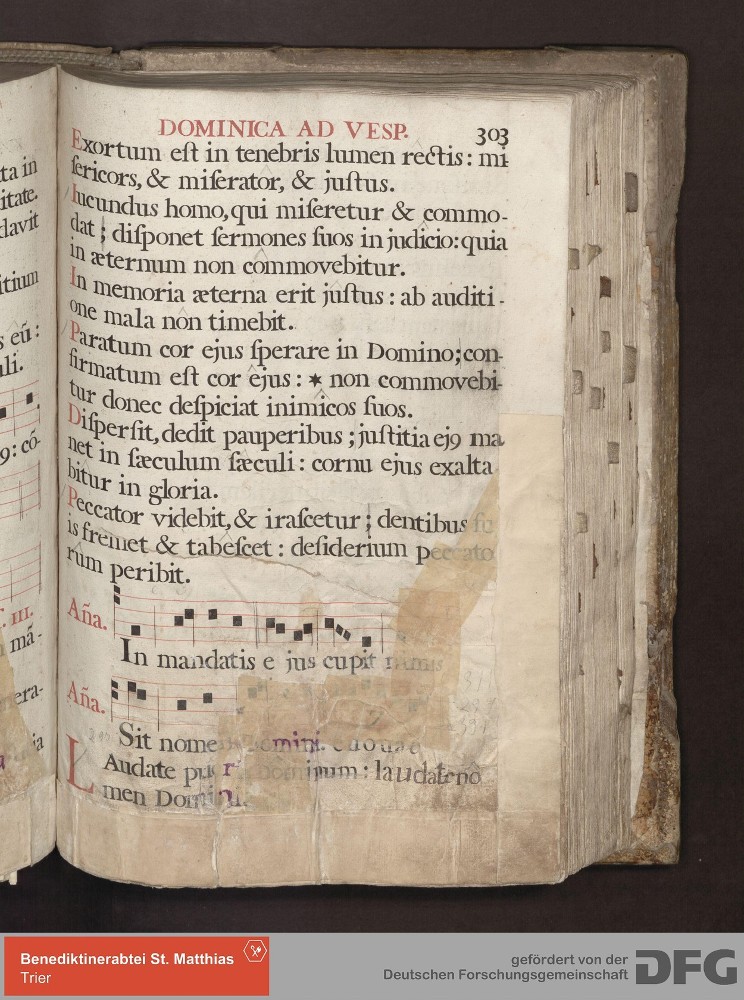 ta in
itate.
davit
itium
s eũ:
uli.
9: cõ-
. III.
mã-
nera-
ia
DOMINICA AD VESP. 303
Exortum eſt in tenebris lumen rectis: mi
ſericors, & miſerator, & juſtus.
Iucundus homo, qui miſeretur & commo-
dat; diſponet ſermones ſuos in judicio: quia
in æternum non commovebitur.
In memoria æterna erit juſtus: ab auditi-
one mala non timebit.
Paratum cor ejus ſperare in Domino; con-
firmatum eſt cor ejus: ✶ non commovebi-
tur donec deſpiciat inimicos ſuos.
Diſperſit, dedit pauperibus; juſtitia ej9 ma
net in ſæculum ſæculi: cornu ejus exalta
bitur in gloria.
Peccator videbit, & iraſcetur; dentibus
is fremet & tabeſcet: deſiderium peccato
rum peribit.
Aña.
In mandatis e jus cupit nimis
Aña.
Sit nomen Domini. euouae
Laudate pueri Dominum: laudate no
men Domini.
Benediktinerabtei St. Matthias
Trier
gefördert von der
Deutschen Forschungsgemeinschaft
DFG